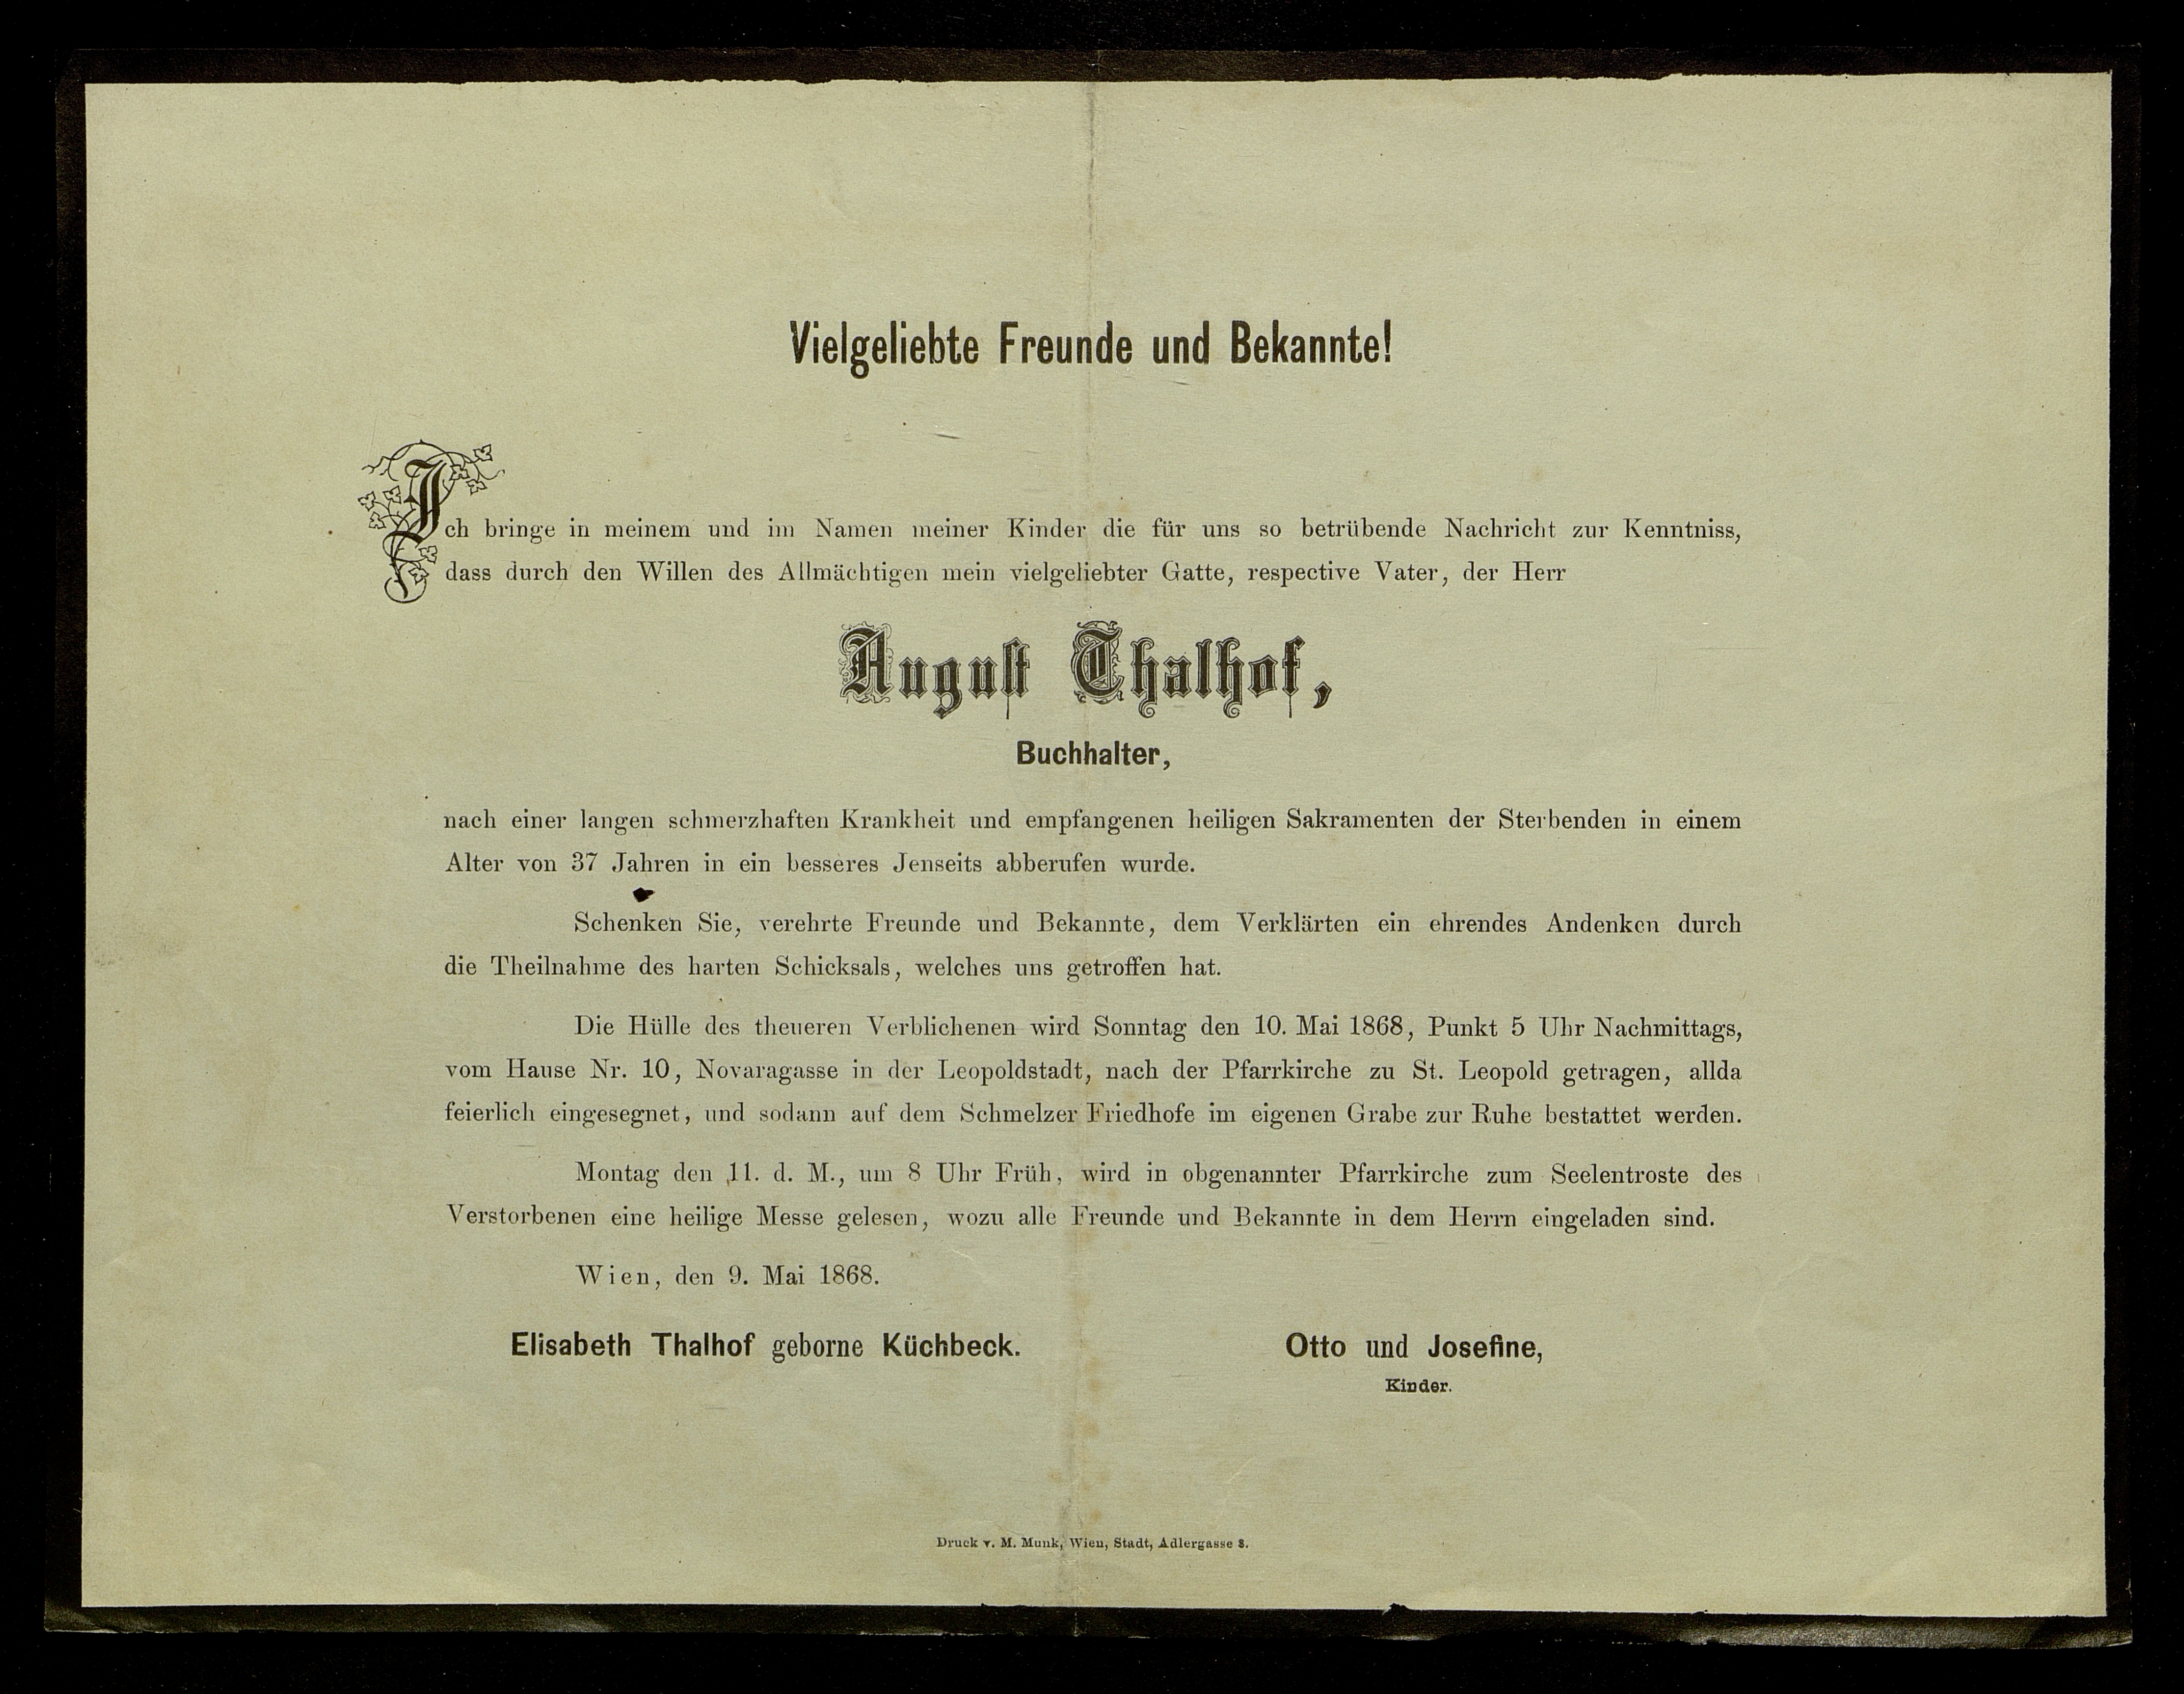 Vielgeliebte Freunde und Bekannte!
Ich bringe in meinem und im Namen meiner Kinder die für uns so betrübende Nachricht zur Kenntniss,
dass durch den Willen des Allmächtigen mein vielgeliebter Gatte, respective Vater, der Herr
August Thalhof,
Buchhalter,
nach einer langen schmerzhaften Krankheit und empfangenen heiligen Sakramenten der Sterbenden in einem
Alter von 37 Jahren in ein besseres Jenseits abberufen wurde.
Schenken Sie, verehrte Freunde und Bekannte, dem Verklärten ein ehrendes Andenken durch
die Theilnahme des harten Schicksals, welches uns getroffen hat.
Die Hülle des theueren Verblichenen wird Sonntag den 10. Mai 1868, Punkt 5 Uhr Nachmittags,
vom Hause Nr. 10, Novaragasse in der Leopoldstadt, nach der Pfarrkirche zu St. Leopold getragen, allda
feierlich eingesegnet, und sodann auf dem Schmelzer Friedhofe im eigenen Grabe zur Ruhe bestattet werden.
Montag den 11. d. M., um 8 Uhr Früh, wird in obgenannter Pfarrkirche zum Seelentroste des
Verstorbenen eine heilige Messe gelesen, wozu alle Freunde und Bekannte in dem Herrn eingeladen sind.
Wien, den 9. Mai 1868.
Elisabeth Thalhof geborne Küchbeck.
Otto und Josefine,
Kinder.
Druck v. M. Munk, Wien, Stadt, Adlergasse 8.